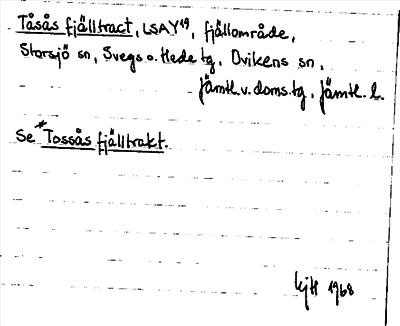 Tåsås fjälltract, LSAY¹⁹, fjällområde,
Storsjö sn, Svegs o. Hede tg, Ovikens sn,
Jämtl. v. doms. tg, Jämtl. l.
Se *Tossås fjälltrakt.
KjH 1968